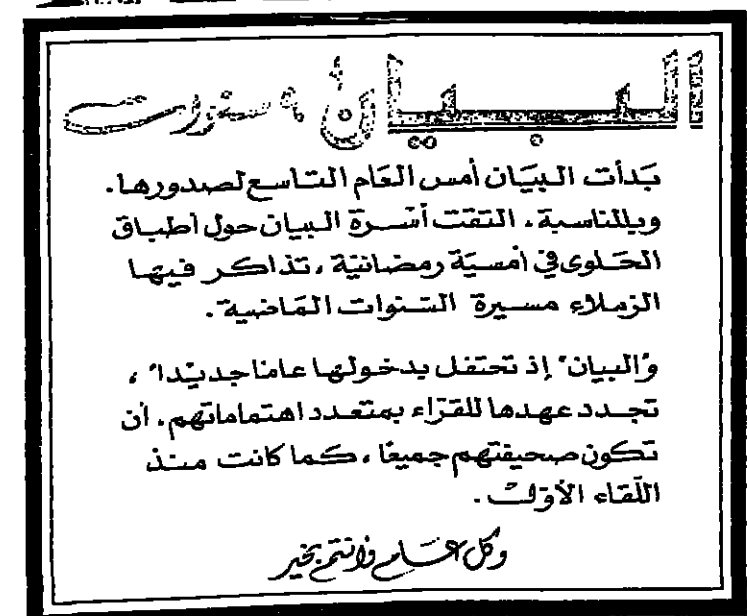 البيان ٩ سنوات
بدأت البيان أمس العام التاسع لصدورها.
وبالمناسبة، التقت أسرة البيان حول أطباق
الحلوى في أمسية رمضانية، تذاكر فيها
الزملاء مسيرة السنوات الماضية.
و"البيان" إذ تحتفل بدخولها عاما جديدا"،
تجدد عهدها للقراء بمتعدد اهتماماتهم، أن
تكون صحيفتهم جميعا، كما كانت منذ
اللقاء الأول.
وكل عام وأنتم بخير